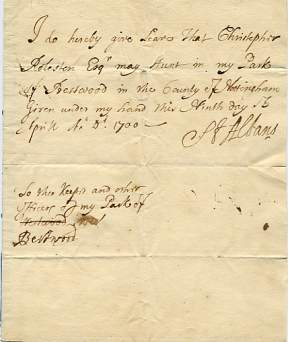 I do hereby give Leave That Christopher
Rolesten Esqr may Hunt in my Park
of Bestwood in the County of Nottingham
Given under my hand this Ninth day of
Aprill Ao Di 1700
St Albans
To the Keeper and other
Officers of my Park of
Bestwood